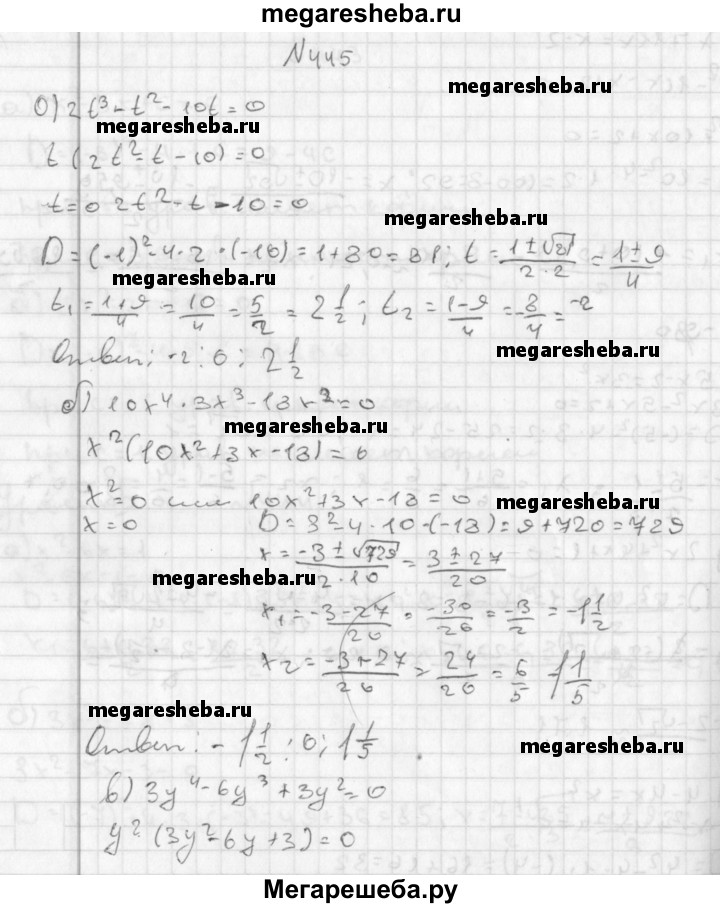 megaresheba.ru
N445
megaresheba.ru
а) 2t³ - t² - 10t = 0
megaresheba.ru
t(2t² - t - 10) = 0
t = 0 2t² - t - 10 = 0
megaresheba.ru
D = (-1)² - 4·2·(-10) = 1 + 80 = 81; t = (1±√81)/(2·2) = (1±9)/4
megaresheba.ru
t₁ = (1+9)/4 = 10/4 = 5/2 = 2 1/2; t₂ = (1-9)/4 = -8/4 = -2
megaresheba.ru
Ответ: -2; 0; 2 1/2
б) 10x⁴ · 3x³ - 18x² = 0
megaresheba.ru
x²(10x² + 3x - 18) = 0
x² = 0 или 10x² + 3x - 18 = 0
megaresheba.ru
x = 0 D = 3² - 4·10·(-18) = 9 + 720 = 729
x = (-3±√729)/(2·10) = (3±27)/20
megaresheba.ru
x₁ = (-3-27)/20 = -30/20 = -3/2 = -1 1/2
megaresheba.ru
x₂ = (-3+27)/20 = 24/20 = 6/5 = 1 1/5
megaresheba.ru
Ответ: -1 1/2; 0; 1 1/5.
megaresheba.ru
в) 3y⁴ - 6y³ + 3y² = 0
y²(3y² - 6y + 3) = 0
Мегарешеба.ру